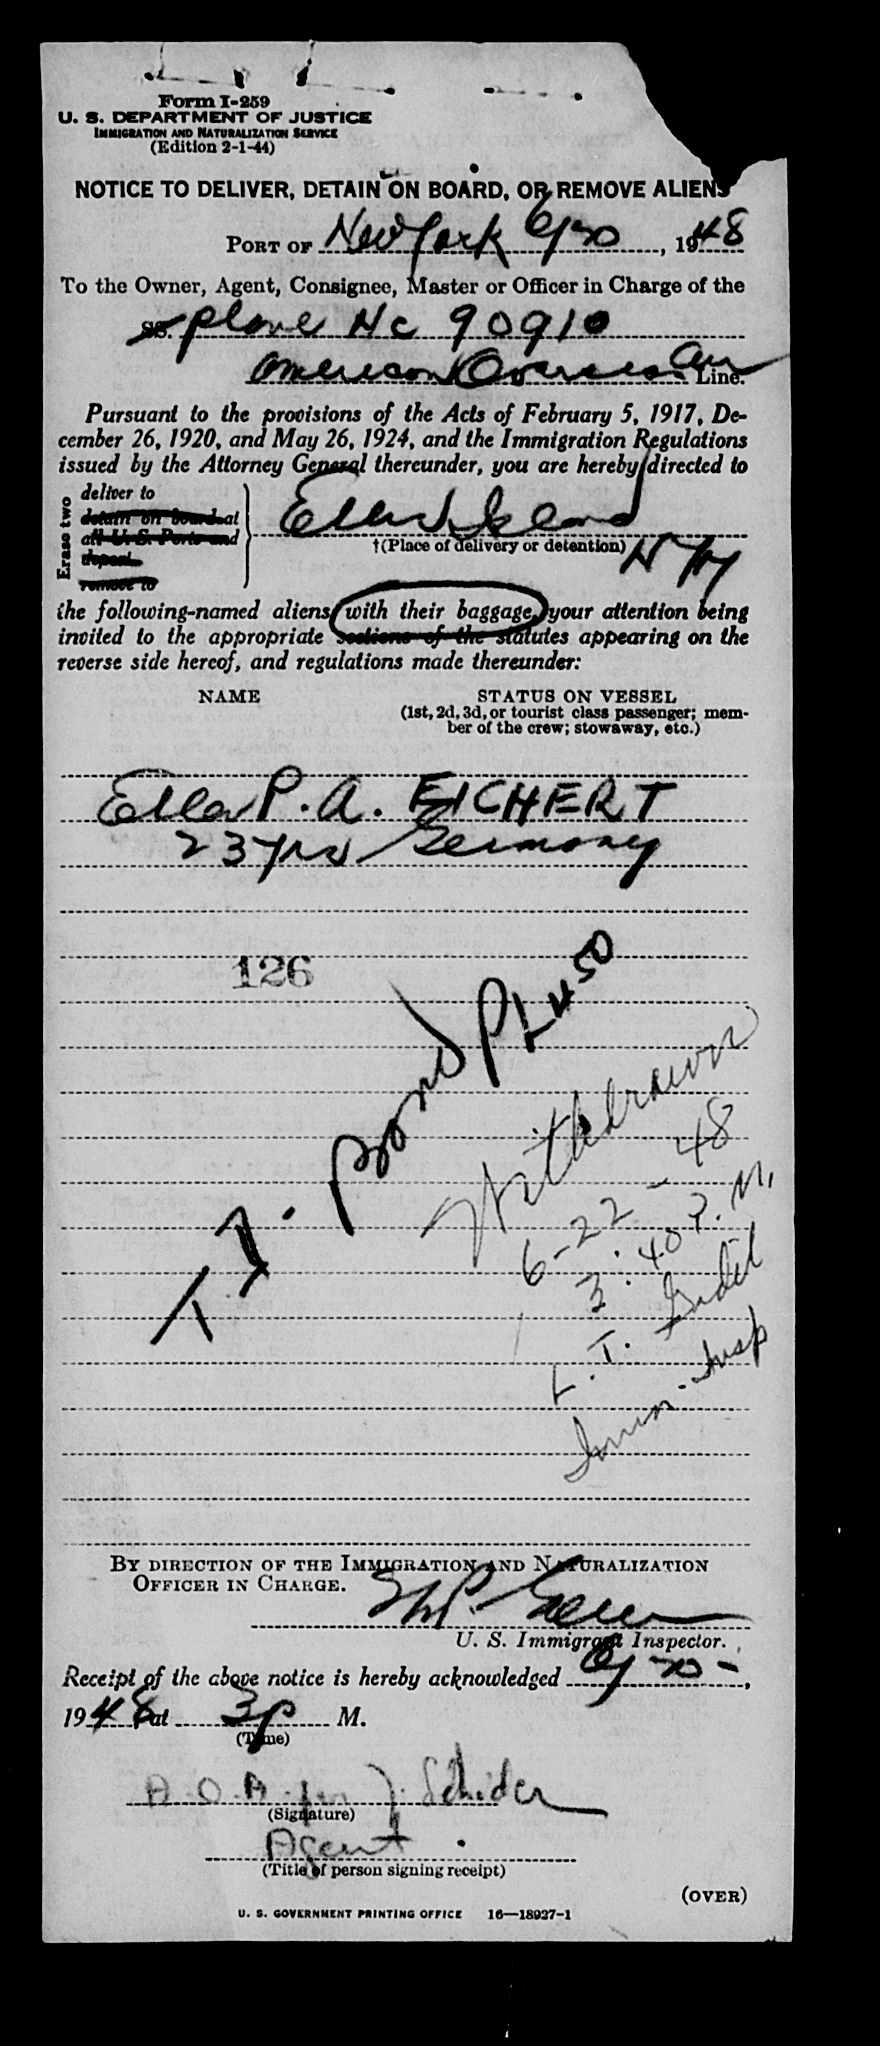 Form I-259
U. S. DEPARTMENT OF JUSTICE
IMMIGRATION AND NATURALIZATION SERVICE
(Edition 2-1-44)
NOTICE TO DELIVER, DETAIN ON BOARD, OR REMOVE ALIENS
PORT OF New York 6/20, 1948
To the Owner, Agent, Consignee, Master or Officer in Charge of the
SS. plane Nc 90910
American Overseas Air Line.
Pursuant to the provisions of the Acts of February 5, 1917, De-
cember 26, 1920, and May 26, 1924, and the Immigration Regulations
issued by the Attorney General thereunder, you are hereby directed to
Erase two
deliver to
detain on board at
all U. S. Ports and
deport
remove to
Ellis Island
†(Place of delivery or detention)
NYH
the following-named aliens, with their baggage, your attention being
invited to the appropriate sections of the statutes appearing on the
reverse side hereof, and regulations made thereunder:
NAME
STATUS ON VESSEL
(1st, 2d, 3d, or tourist class passenger; mem-
ber of the crew; stowaway, etc.)
Ella P. A. EICHERT
23 yrs Germany
126
Bond PL 450
Withdrawn
6-22-48
3:40 P.M.
L. T.
Imm. Insp
BY DIRECTION OF THE IMMIGRATION AND NATURALIZATION
OFFICER IN CHARGE.
U. S. Immigrant Inspector.
Receipt of the above notice is hereby acknowledged 6/20-,
1948 at 3p M.
(Time)
A.O.A. per J. Schider
(Signature)
Agent.
(Title of person signing receipt)
(OVER)
U. S. GOVERNMENT PRINTING OFFICE 16—18927-1